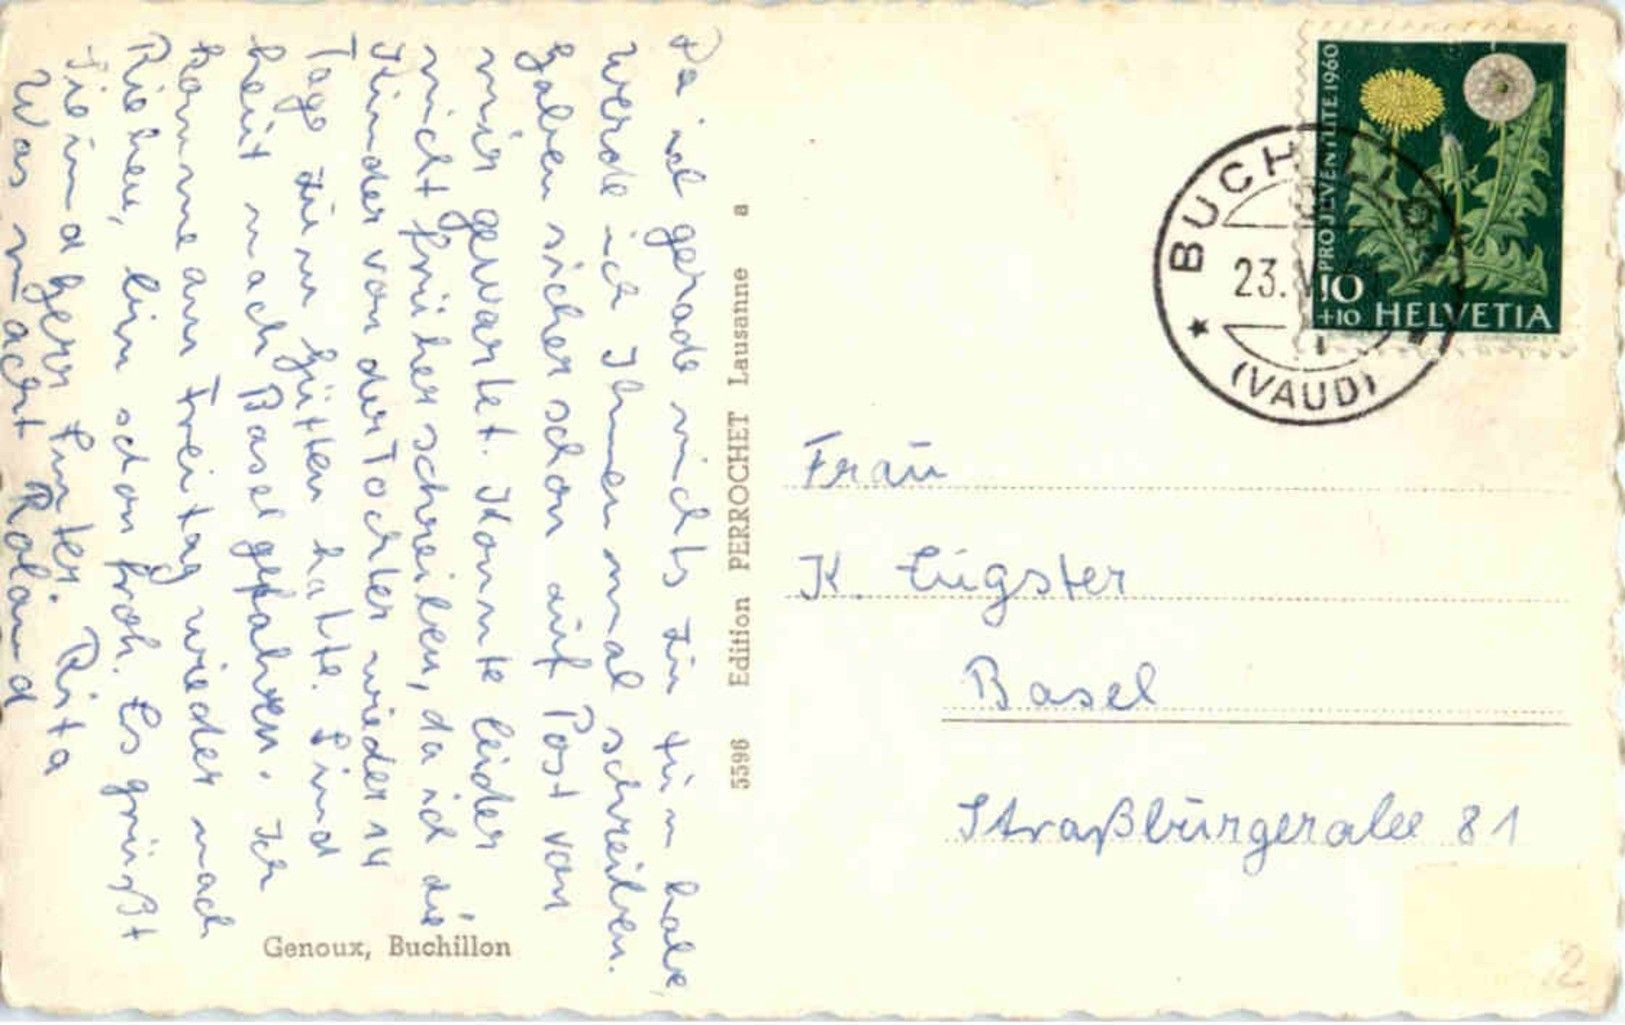 Da ich gerade nichts zu tun habe,
werde ich Ihnen mal schreiben.
Haben sicher schon auf Post von
mir gewartet. Konnte leider
nicht früher schreiben, da ich die
Kinder von der Tochter wieder 14
Tage zum hüten hatte. Sind
heut nach Basel gefahren. Ich
komme am Freitag wieder nach
Riehen, bin schon froh. Es grüßt
Sie und Herr Rita
Was macht Roland
5596 Edition PERROCHET Lausanne a
Genoux, Buchillon
PRO JUVENTUTE 1960
10
+10 HELVETIA
BUCHILLON
23.
(VAUD)
Frau
K. Eugster
Basel
Straßburgeralee 81
2